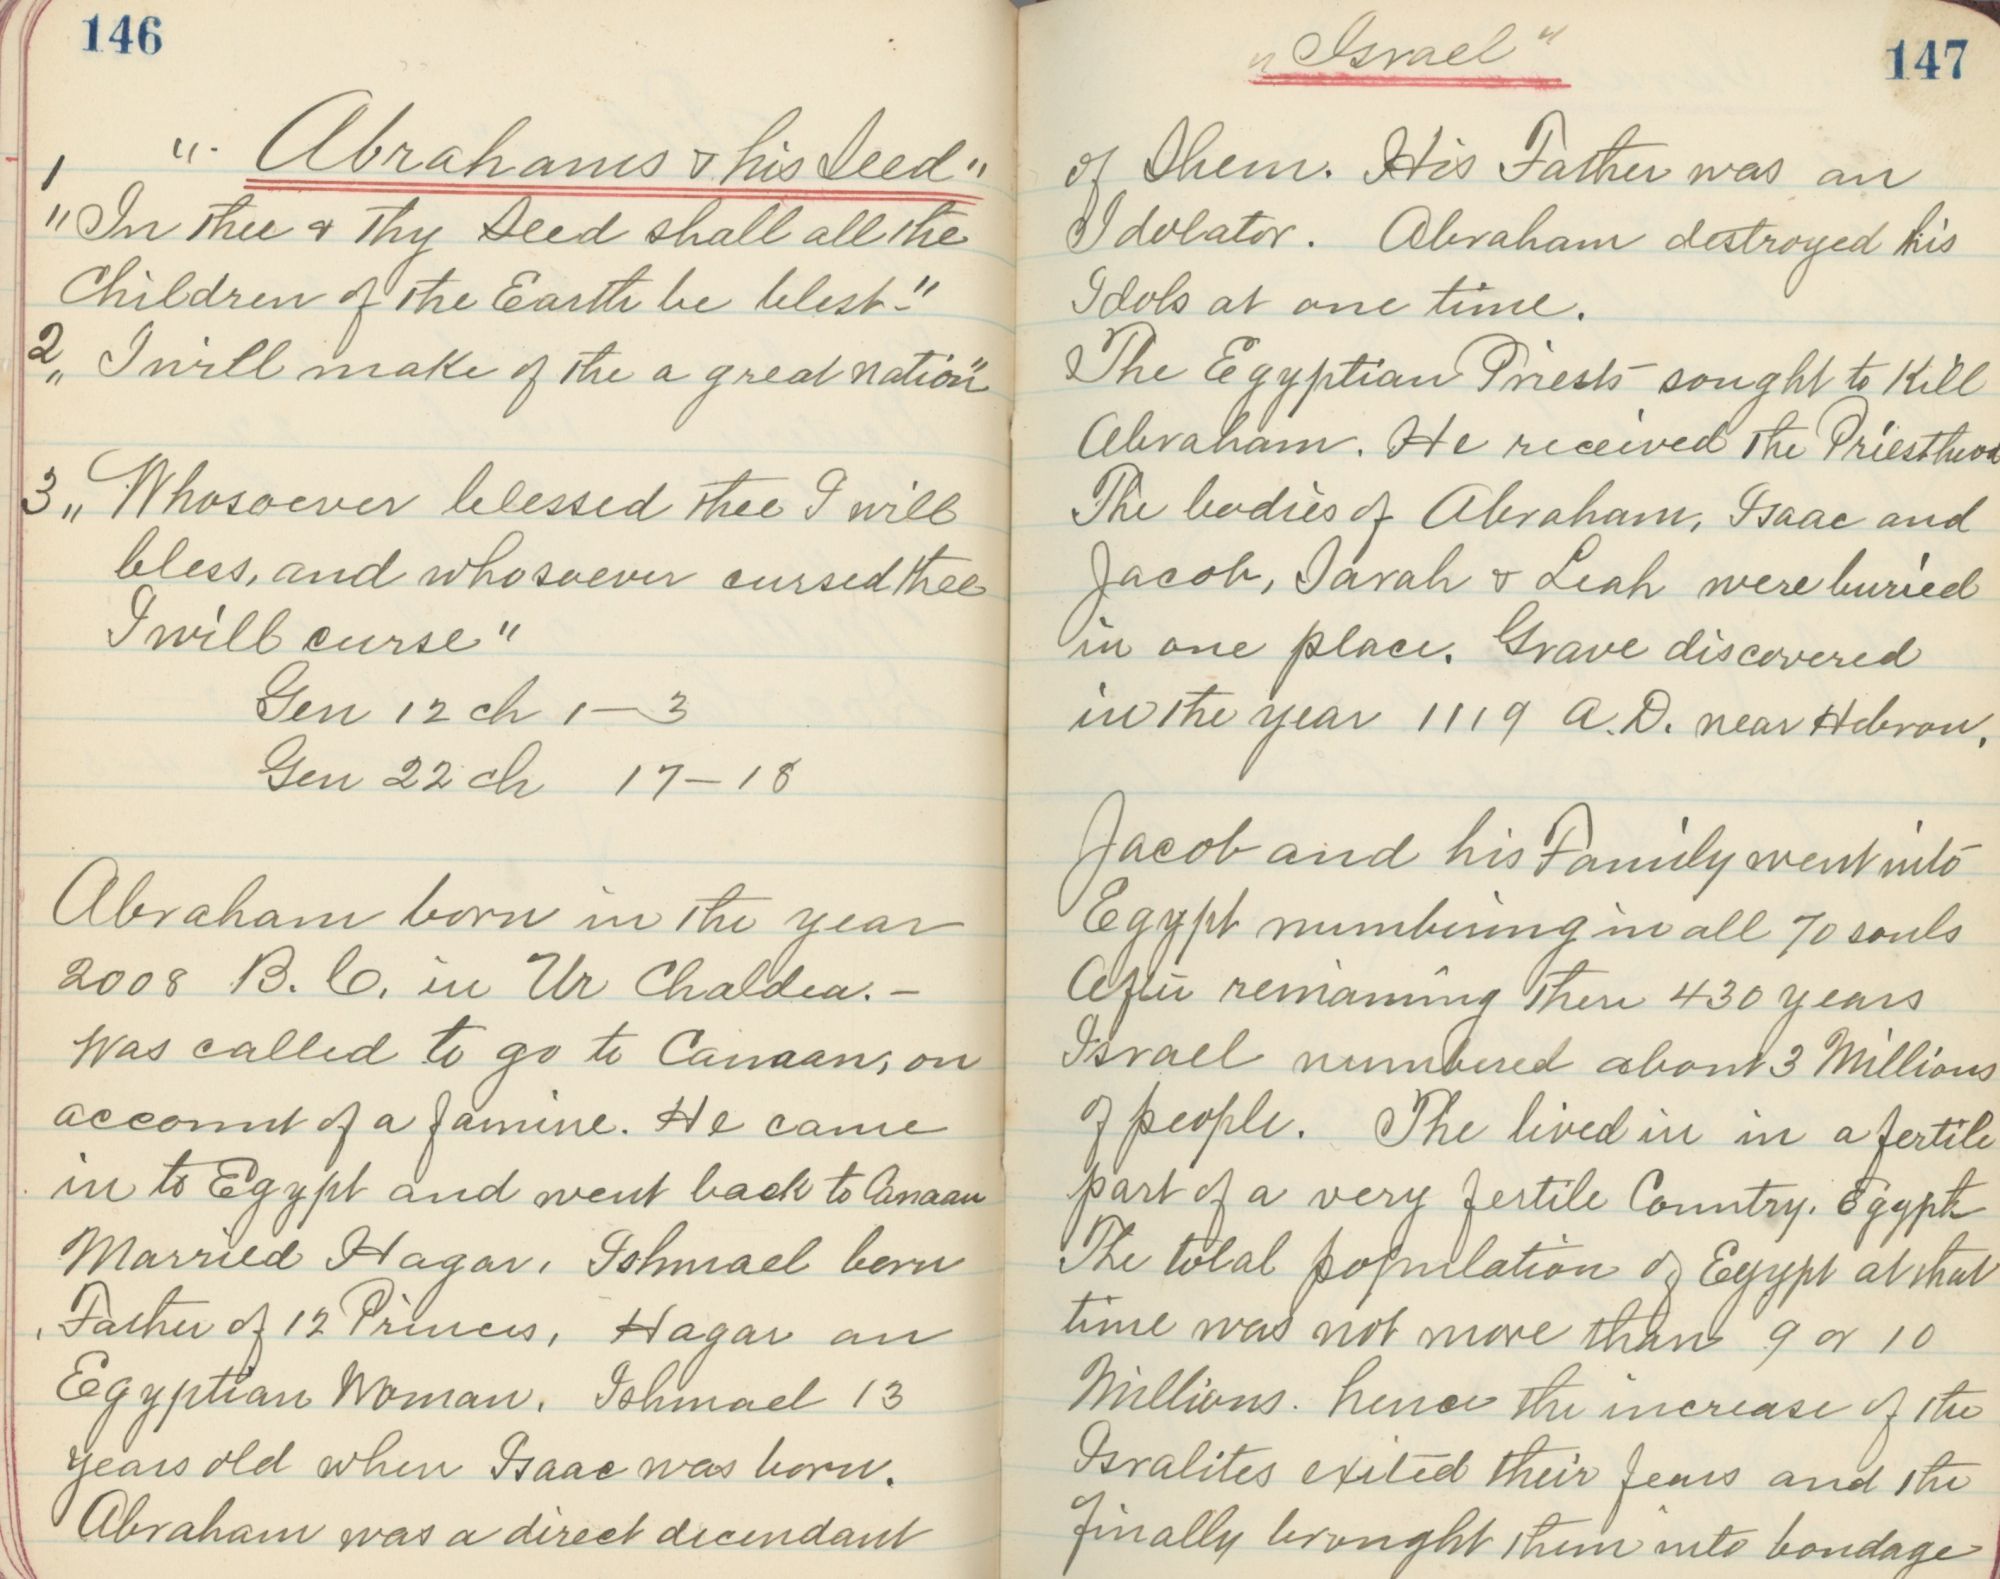 146
1 "· Abrahams & his Seed"
"In thee & thy Seed shall all the
Children of the Earth be blest-"
2 " I will make of the a great nation"
3 " Whosoever blessed thee I will
bless, and whosoever cursed thee
I will curse"
Gen 12 ch 1-3
Gen 22 ch 17-18
Abraham born in the year
2008 B. C. in Ur Chaldea. -
Was called to go to Canaan, on
account of a famine. He came
in to Egypt and went back to Canaan
Married Hagar, Ishmael born
Father of 12 Princes, Hagar an
Egyptian Woman. Ishmael 13
years old when Isaac was born.
Abraham was a direct decendant
"Israel"
147
of Shem. His Father was an
Idolator. Abraham destroyed his
Idols at one time.
The Egyptian Priests sought to Kill
Abraham. He received the Priesthood
The bodies of Abraham, Isaac and
Jacob, Sarah & Leah were buried
in one place. Grave discovered
in the year 1119 A.D. near Hebron.
Jacob and his Family went into
Egypt numbering in all 70 souls
After remaining there 430 years
Israel numbered about 3 Millions
of people. The lived in in a fertile
part of a very fertile Country. Egypt
The total population of Egypt at that
time was not more than 9 or 10
Millions. hence the increase of the
Isralites exited their fears and the
finally brought them into bondage